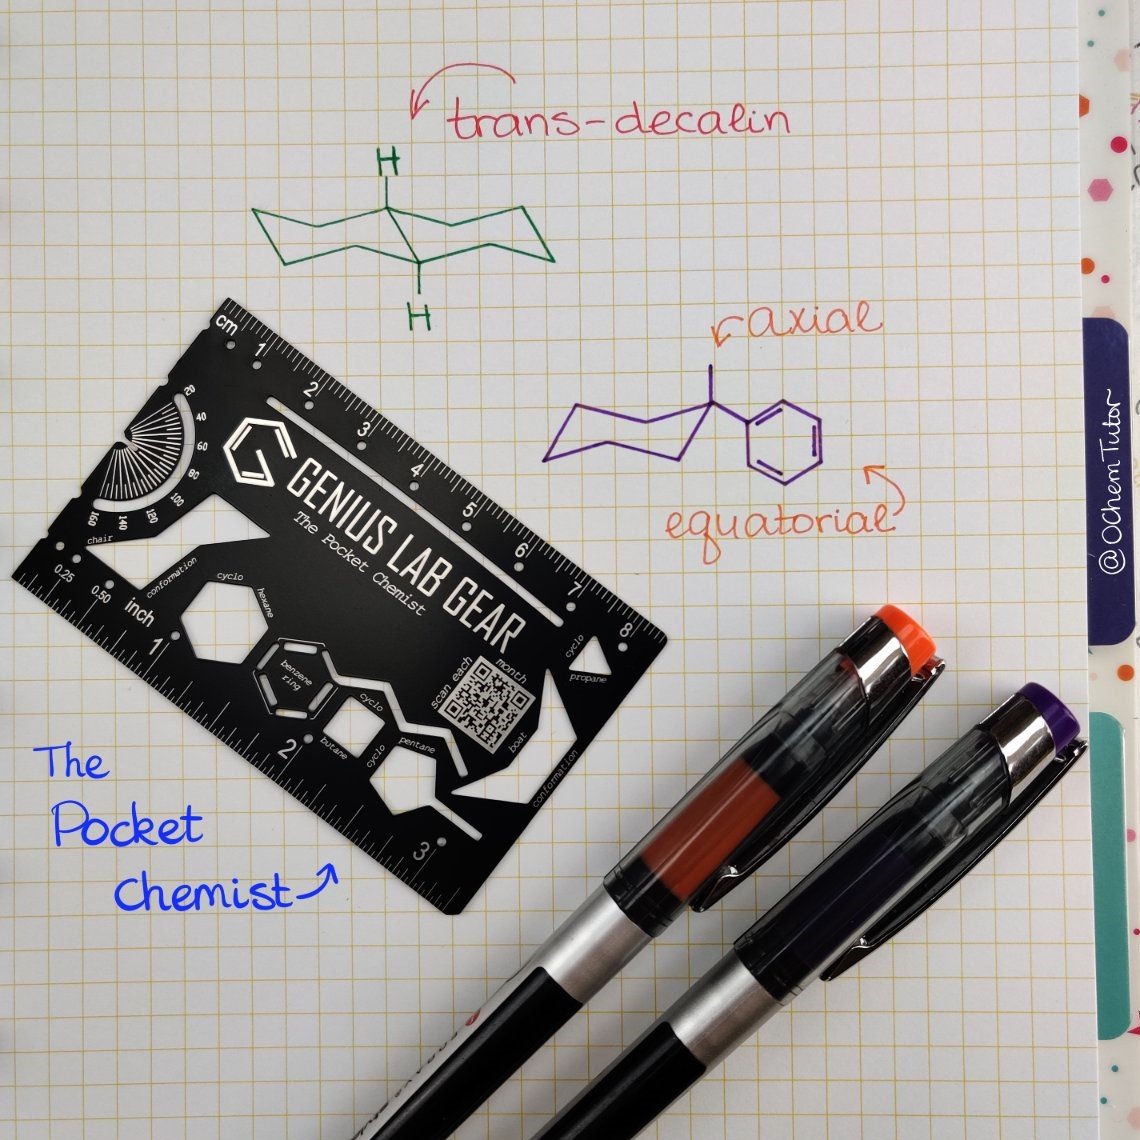 trans-decalin
H
H
axial
equatorial
@OChemTutor
cm
1
2
3
4
5
6
7
8
40
60
80
100
120
140
160
GENIUS LAB GEAR
The Pocket Chemist
chair
conformation
0.25
0.50
inch
1
2
3
cyclo
hexane
benzene
ring
cyclo
butane
cyclo
pentane
scan each
month
boat
conformation
cyclo
propane
The
Pocket
Chemist